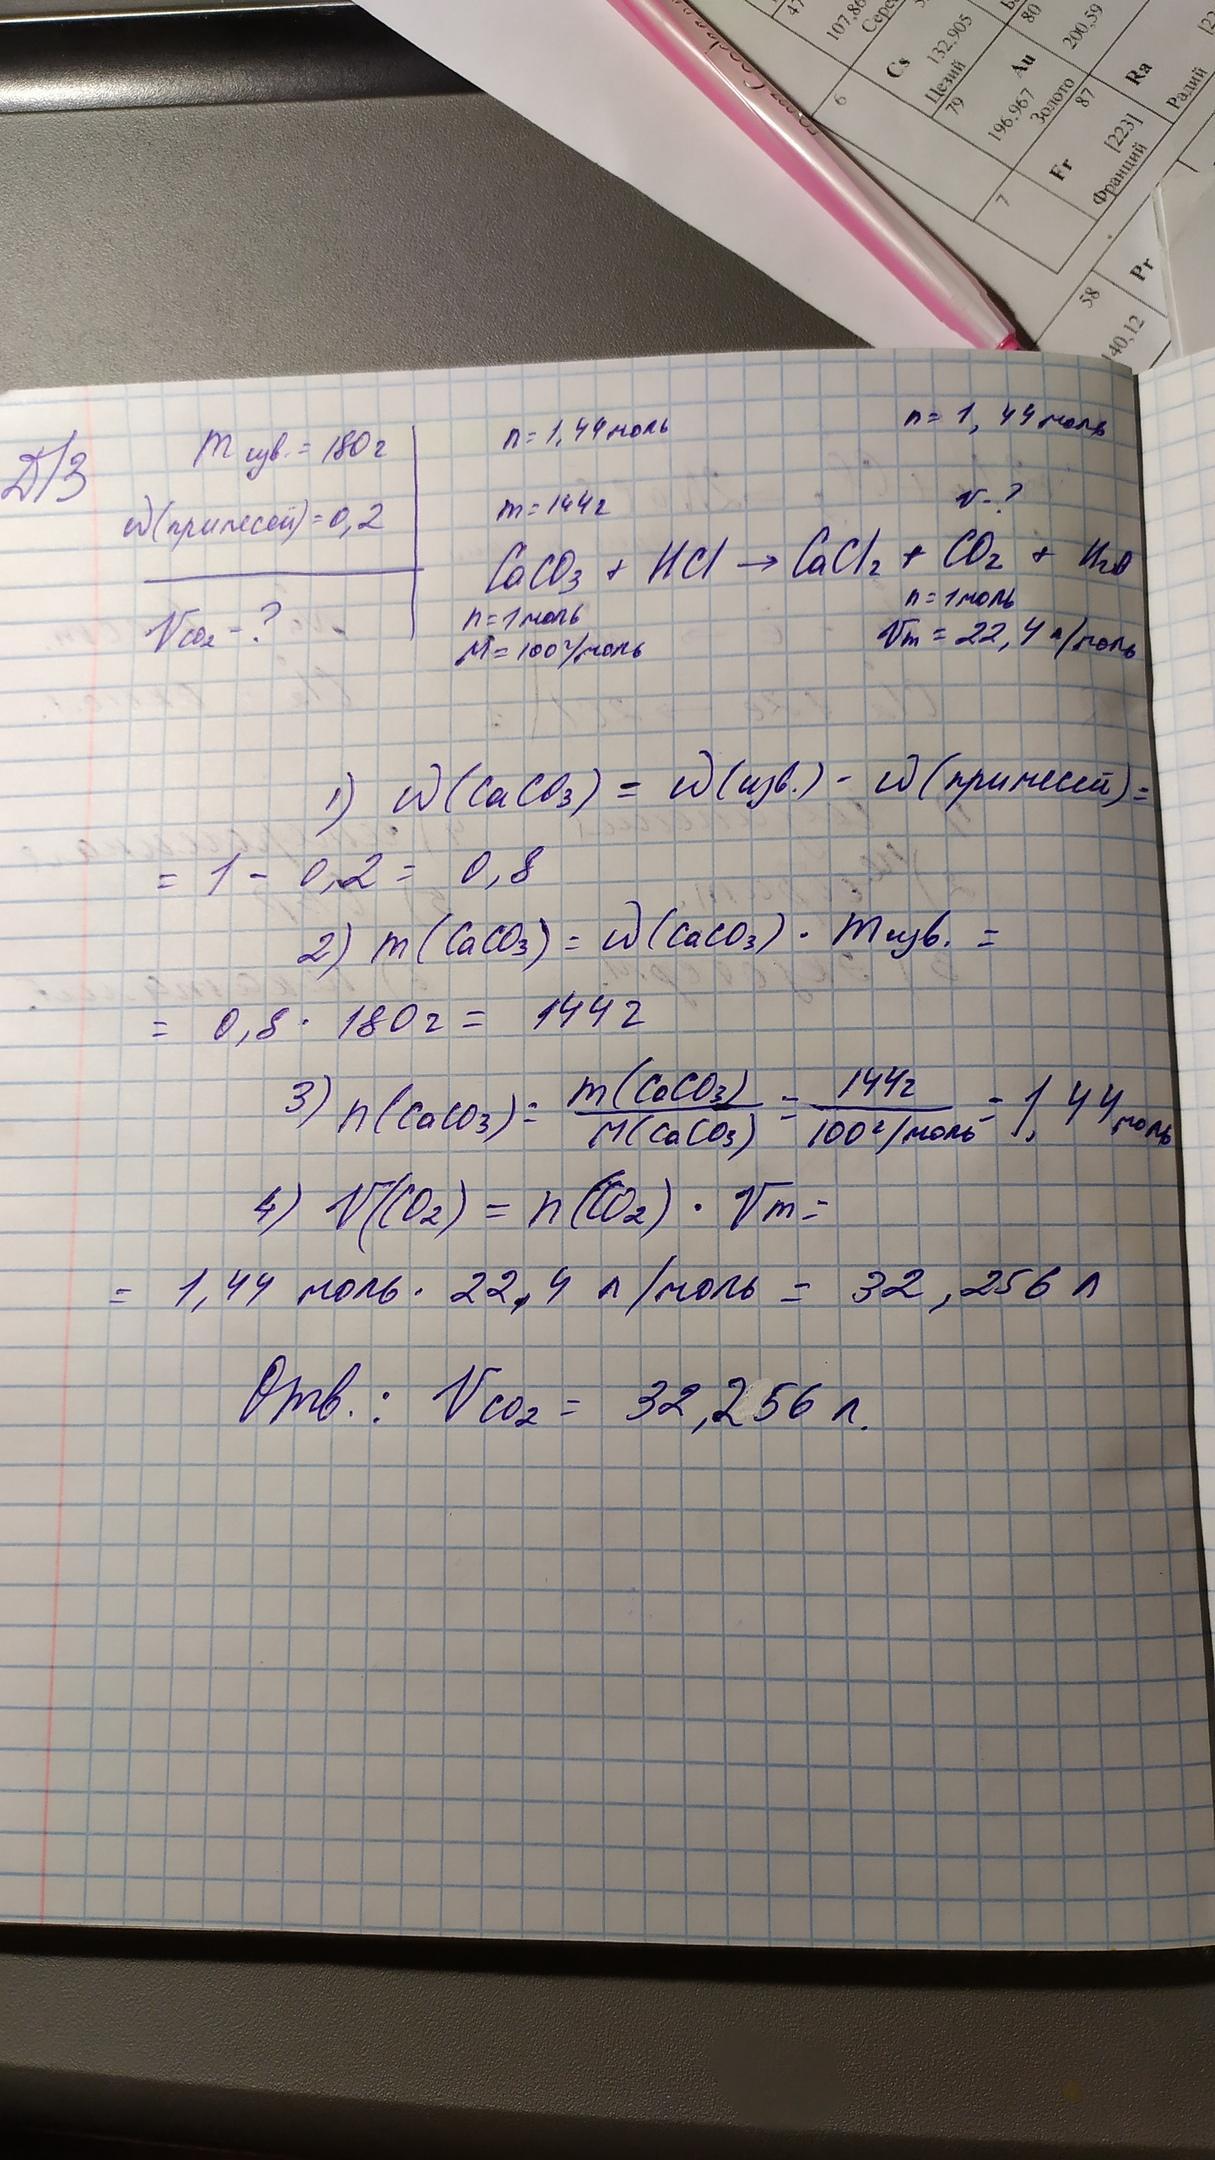 47
107,86
Сереб
6
Cs 132,905
Цезий
79
Au
196,967
Золото
80
200,59
7
Fr [223]
Франций
87
Ra
Радий
58
Pr
140,12
Д/З
m изв. = 180 г
w(примесей) = 0,2
Vco₂ - ?
n = 1,44 моль
n = 1,44 моль
m = 144 г
v - ?
CaCO₃ + HCl → CaCl₂ + CO₂ + H₂O
n = 1 моль
n = 1 моль
M = 100 г/моль
Vm = 22,4 л/моль
1) w(CaCO₃) = w(изв.) - w(примесей) =
= 1 - 0,2 = 0,8
2) m(CaCO₃) = w(CaCO₃) · m изв. =
= 0,8 · 180 г = 144 г
3) n(CaCO₃) = m(CaCO₃) / M(CaCO₃) = 144 г / 100 г/моль = 1,44 моль
4) V(CO₂) = n(CO₂) · Vm =
= 1,44 моль · 22,4 л/моль = 32,256 л
Отв.: Vco₂ = 32,256 л.